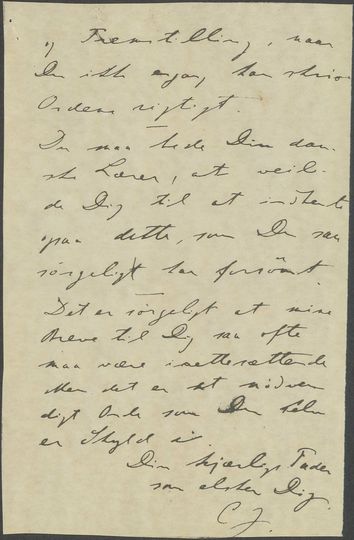 og Fremstilling, naar
Du ikke engang kan skrive
Ordene rigtigt.
Du maa bede Din dan-
ske Lærer, at veile-
de Dig til at indhente
paa dette, som Du saa
sørgeligt har forsømt.
Det er sørgeligt at mine
Breve til Dig saa ofte
maa være irettesættende
Men det er et nødven
digt Onde som Du selv
er Skyld i.
Din kjærlige Fader
som elsker Dig.
C J.